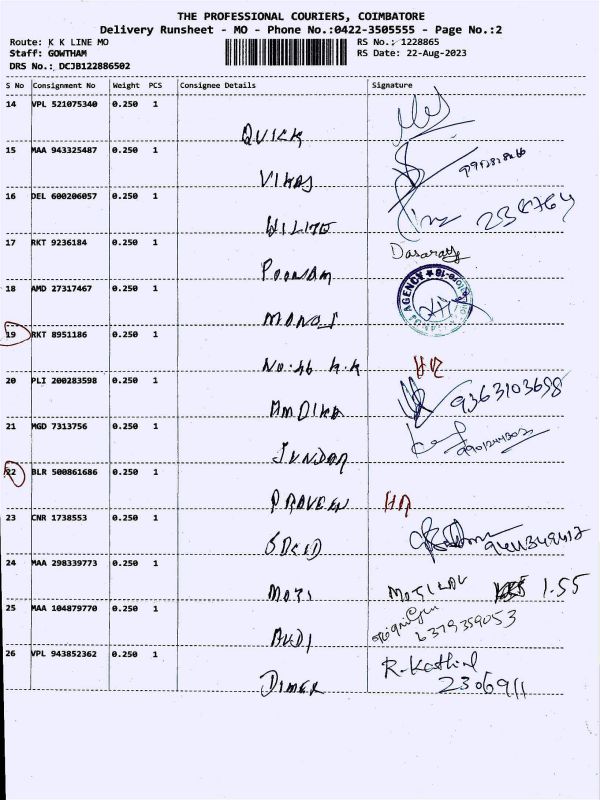 THE PROFESSIONAL COURIERS, COIMBATORE
Delivery Runsheet - MO - Phone No.:0422-3505555 - Page No.:2
Route: K K LINE MO RS No.: 1228865
Staff: GOWTHAM RS Date: 22-Aug-2023
DRS No.: DCJB122886502
S No Consignment No Weight PCS Consignee Details Signature
14 VPL 521075340 0.250 1
QUICK
15 MAA 943325487 0.250 1
VIKAS
16 DEL 600206057 0.250 1
17 RKT 9236184 0.250 1
POONAM
18 AMD 27317467 0.250 1
AGENCE
MANOJ
19 RKT 8951186 0.250 1
No: 46 K.K
20 PLI 200283598 0.250 1
AMDIKA 9363103698
21 MGD 7313756 0.250 1
22 BLR 500861686 0.250 1
PRAVEEN
23 CNR 1738553 0.250 1
24 MAA 298339773 0.250 1
MOTI MOTILAL 1.55
25 MAA 104879770 0.250 1
6379359053
26 VPL 943852362 0.250 1
R.Kathil
DIMER 2306911